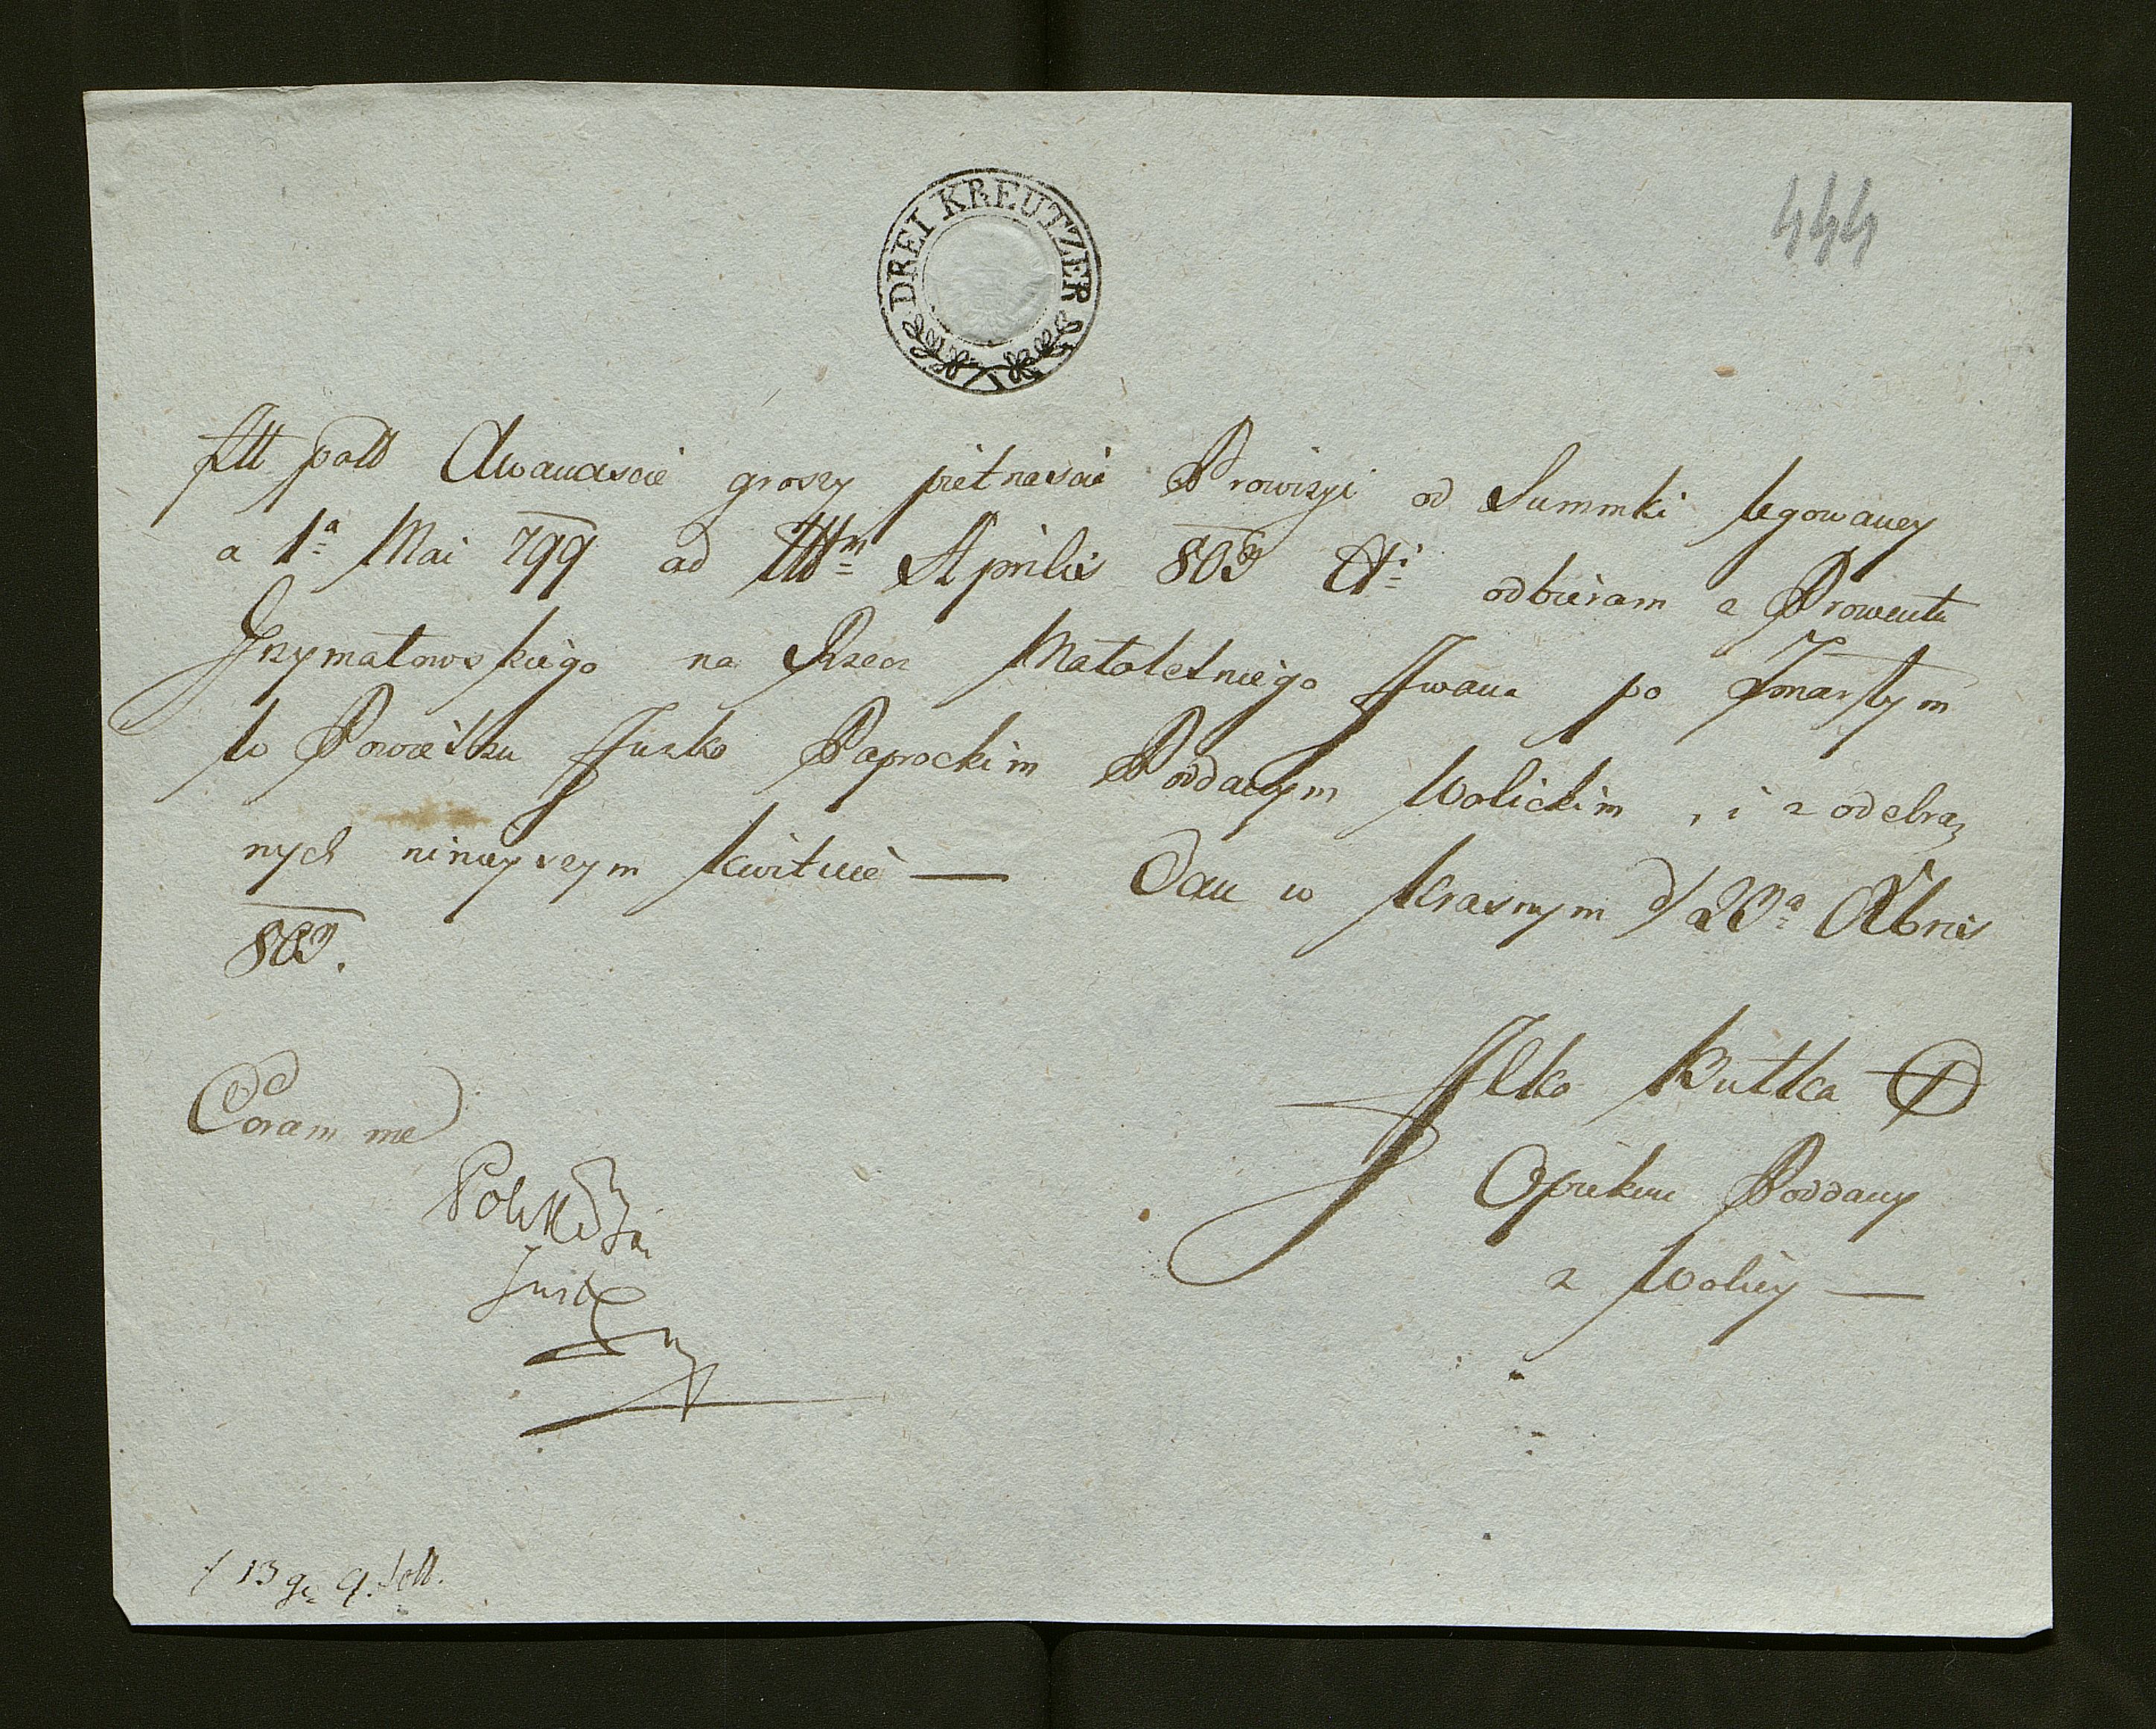 DREI KREUTZER
444
pold dwanascie groszy pietnascie Prowizyi od Summki legowaney
a 1ª Mai 799 ad Aprilis 803 odbieram z Prowentu
Grzymałowskiego na Rzecz Małoletniego Jwana po Zmarłym
w Powietrzu Jurko Paprockim Poddanym Wolickim, i z odebra
nych ninieyszym kwituie — Dan w Krasnym d
803.
Jlko Kutka
Coram me
Opiekun Poddany
z Wolicy —
Just
13 gr 9.